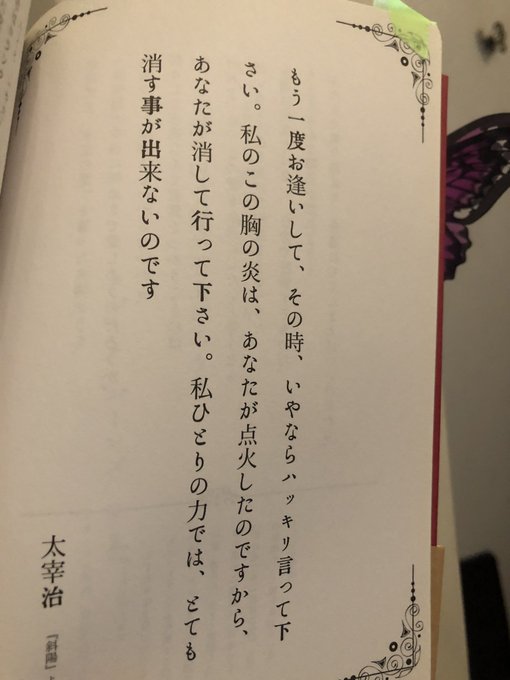 もう一度お逢いして、その時、いやならハッキリ言って下
さい。私のこの胸の炎は、あなたが点火したのですから、
あなたが消して行って下さい。私ひとりの力では、とても
消す事が出来ないのです
太宰治
『斜陽』よ